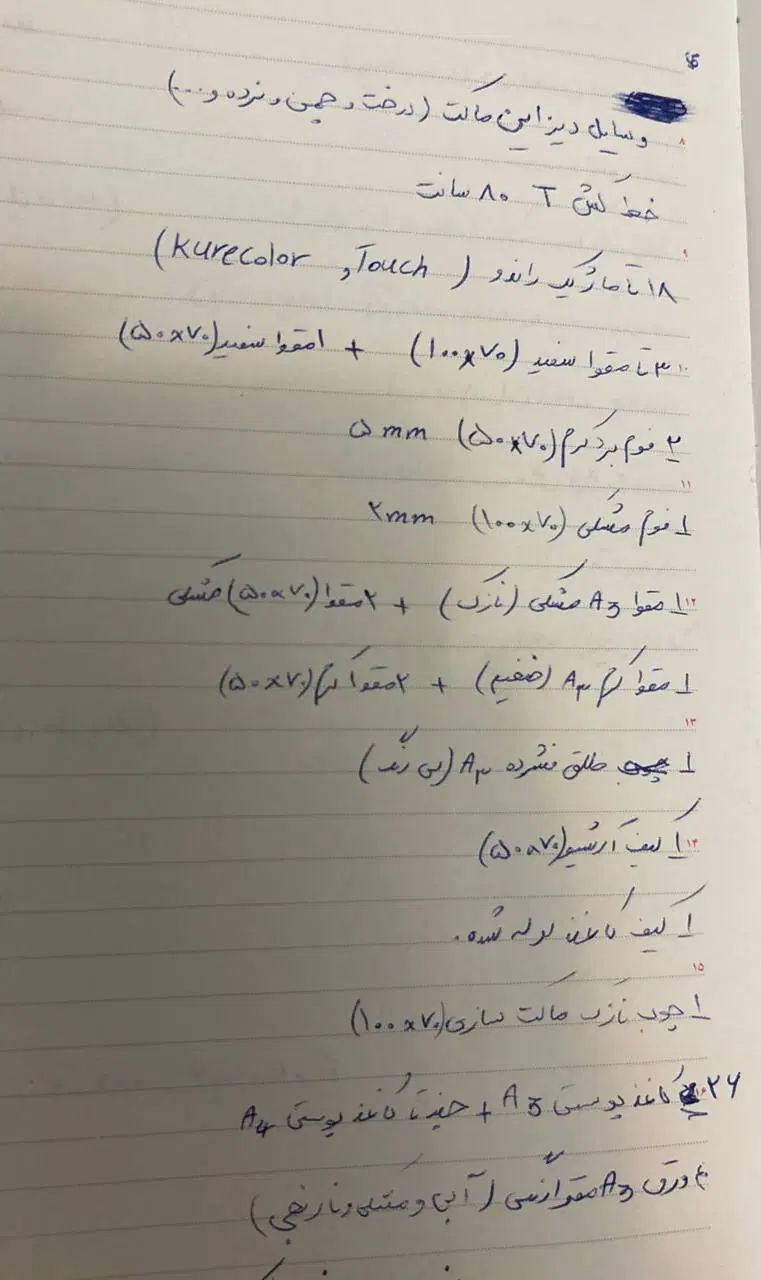 وسایل دیزاین ماکت (درخت و چمن و نرده و ...)
۸
خط کش T ۸۰ سانت
۹
۱۸ تا ماژیک راندو ( Touch و Kurecolor)
۱۰
۳ تا مقوا سفید (۱۰۰x۷۰) + ۱ مقوا سفید (۵۰x۷۰)
۲ فوم برد کرم (۵۰x۷۰) ۵ mm
۱۱
۱ فوم مشکی (۱۰۰x۷۰) ۲mm
۱۲
۱ مقوا A3 مشکی (نازک) + ۲ مقوا (۵۰x۷۰) مشکی
۱ مقوا کرم A۳ (ضخیم) + ۲ مقوا کرم (۵۰x۷۰)
۱۳
۱ طلق فشرده A۳ (بی رنگ)
۱۴
۱ کیف آرشیو (۵۰x۷۰)
۱ کیف کاغذ لوله شده.
۱۵
۱ چوب نازک ماکت سازی (۱۰۰x۷۰)
۱۶
۲۶ کاغذ پوستی A3 + چند تا کاغذ پوستی A4
۴ ورق A3 مقوا (آبی و مشکی و نارنجی)